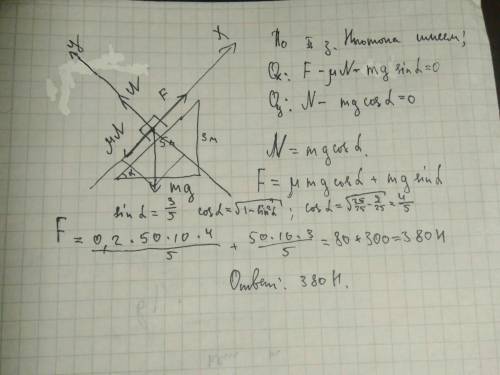 По II з. Ньютона имеем;
Ox: F - μN - mg sin α = 0
Oy: N - mg cos α = 0
N = mg cos α.
F = μ mg cos α + mg sin α
y
x
N
F
μN
5м
3м
α
mg
sin α = 3/5 cos α = √(1 - sin²α) ; cos α = √(25/25 - 9/25) = 4/5
F = 0,2 · 50 · 10 · 4 / 5 + 50 · 10 · 3 / 5 = 80 + 300 = 380 Н
Ответ: 380 Н.